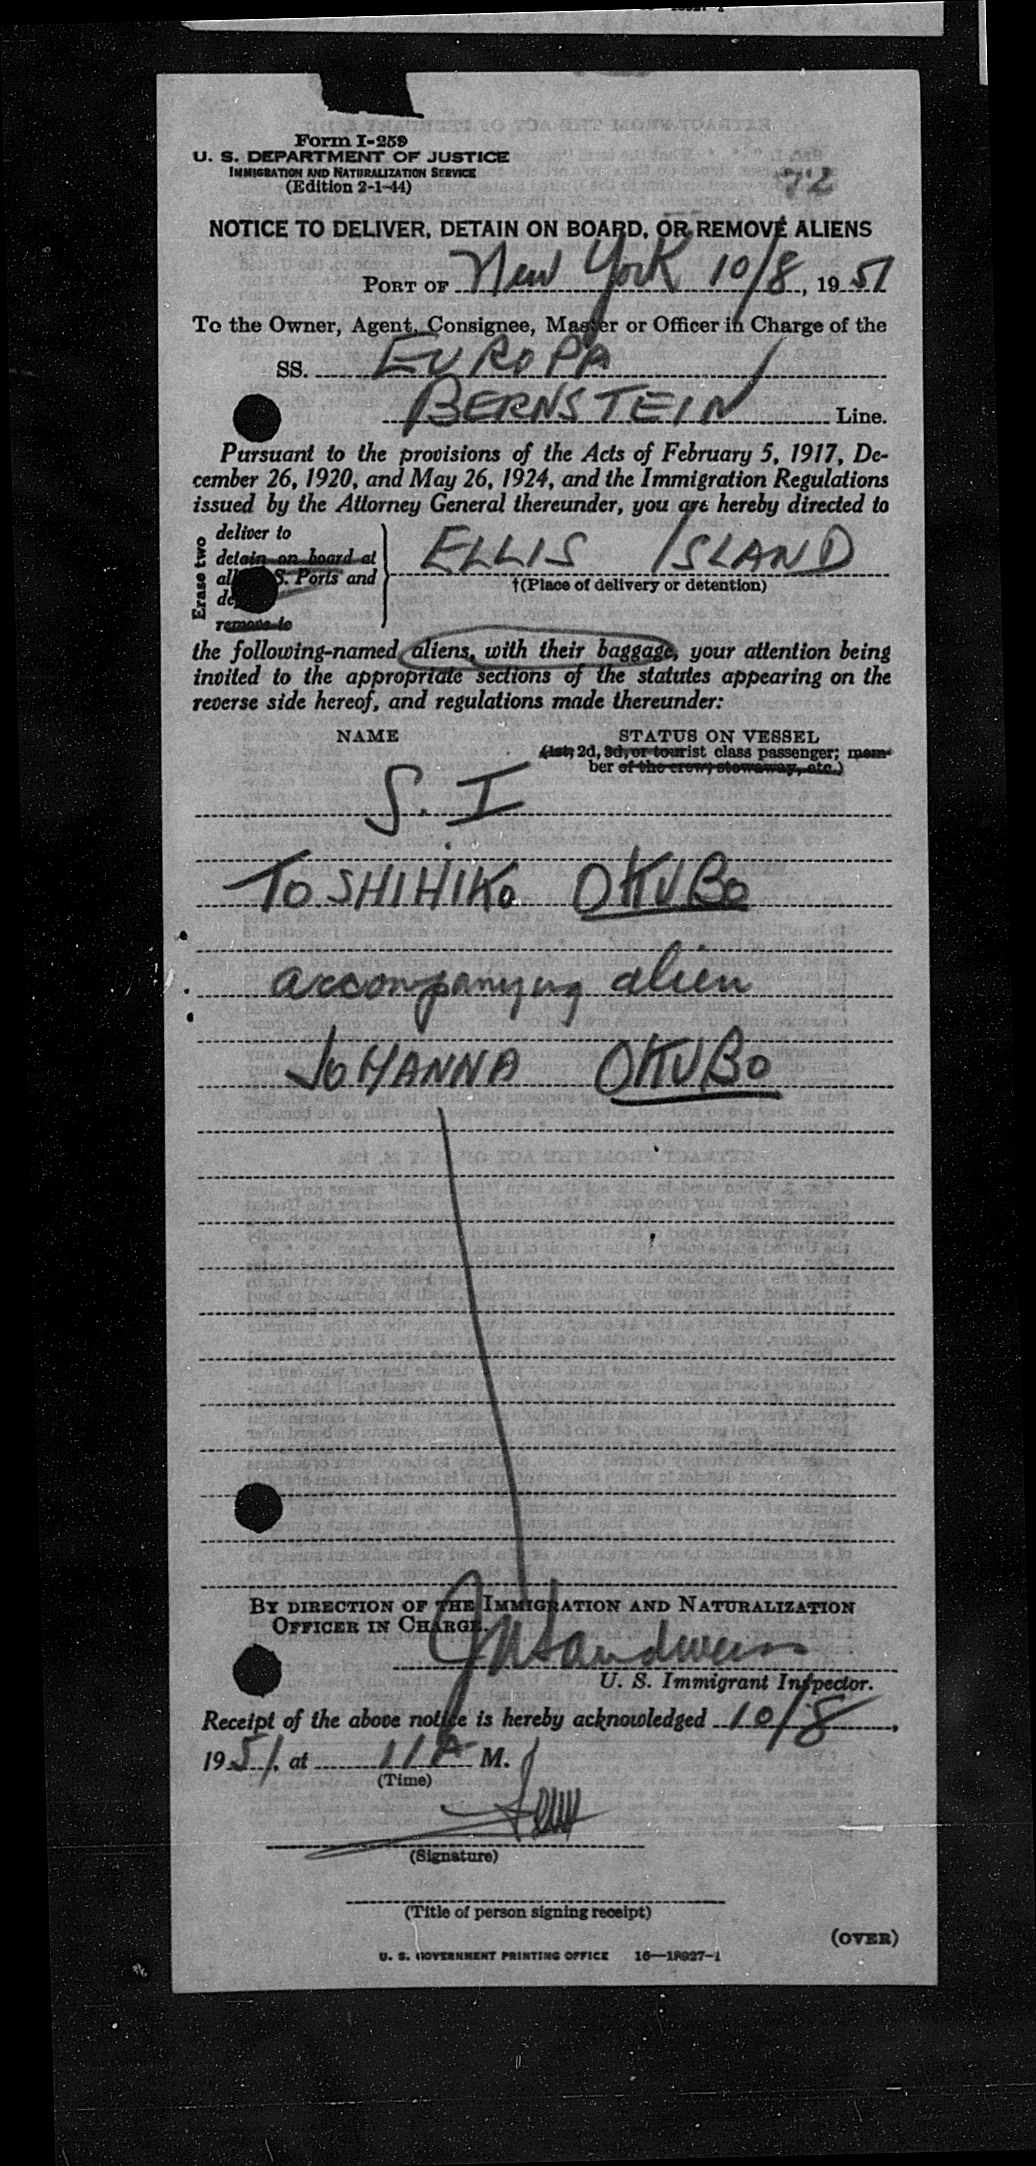 Form I-259
U. S. DEPARTMENT OF JUSTICE
IMMIGRATION AND NATURALIZATION SERVICE
(Edition 2-1-44)
72
NOTICE TO DELIVER, DETAIN ON BOARD, OR REMOVE ALIENS
PORT OF New York 10/8, 1951
To the Owner, Agent, Consignee, Master or Officer in Charge of the
SS. EUROPA
BERNSTEIN Line.
Pursuant to the provisions of the Acts of February 5, 1917, De-
cember 26, 1920, and May 26, 1924, and the Immigration Regulations
issued by the Attorney General thereunder, you are hereby directed to
Erase two
deliver to
detain on board at
S. Ports and
remove to
ELLIS ISLAND
†(Place of delivery or detention)
the following-named aliens, with their baggage, your attention being
invited to the appropriate sections of the statutes appearing on the
reverse side hereof, and regulations made thereunder:
NAME STATUS ON VESSEL
(1st, 2d, 3d, or tourist class passenger; mem-
ber of the crew; stowaway, etc.)
S. I
TOSHIHIKO OKUBO
accompanying alien
JOHANNA OKUBO
BY DIRECTION OF THE IMMIGRATION AND NATURALIZATION
OFFICER IN CHARGE.
U. S. Immigrant Inspector.
Receipt of the above notice is hereby acknowledged 10/8,
1951, at 11 A M.
(Time)
(Signature)
(Title of person signing receipt)
(OVER)
U. S. GOVERNMENT PRINTING OFFICE 16—18927-1